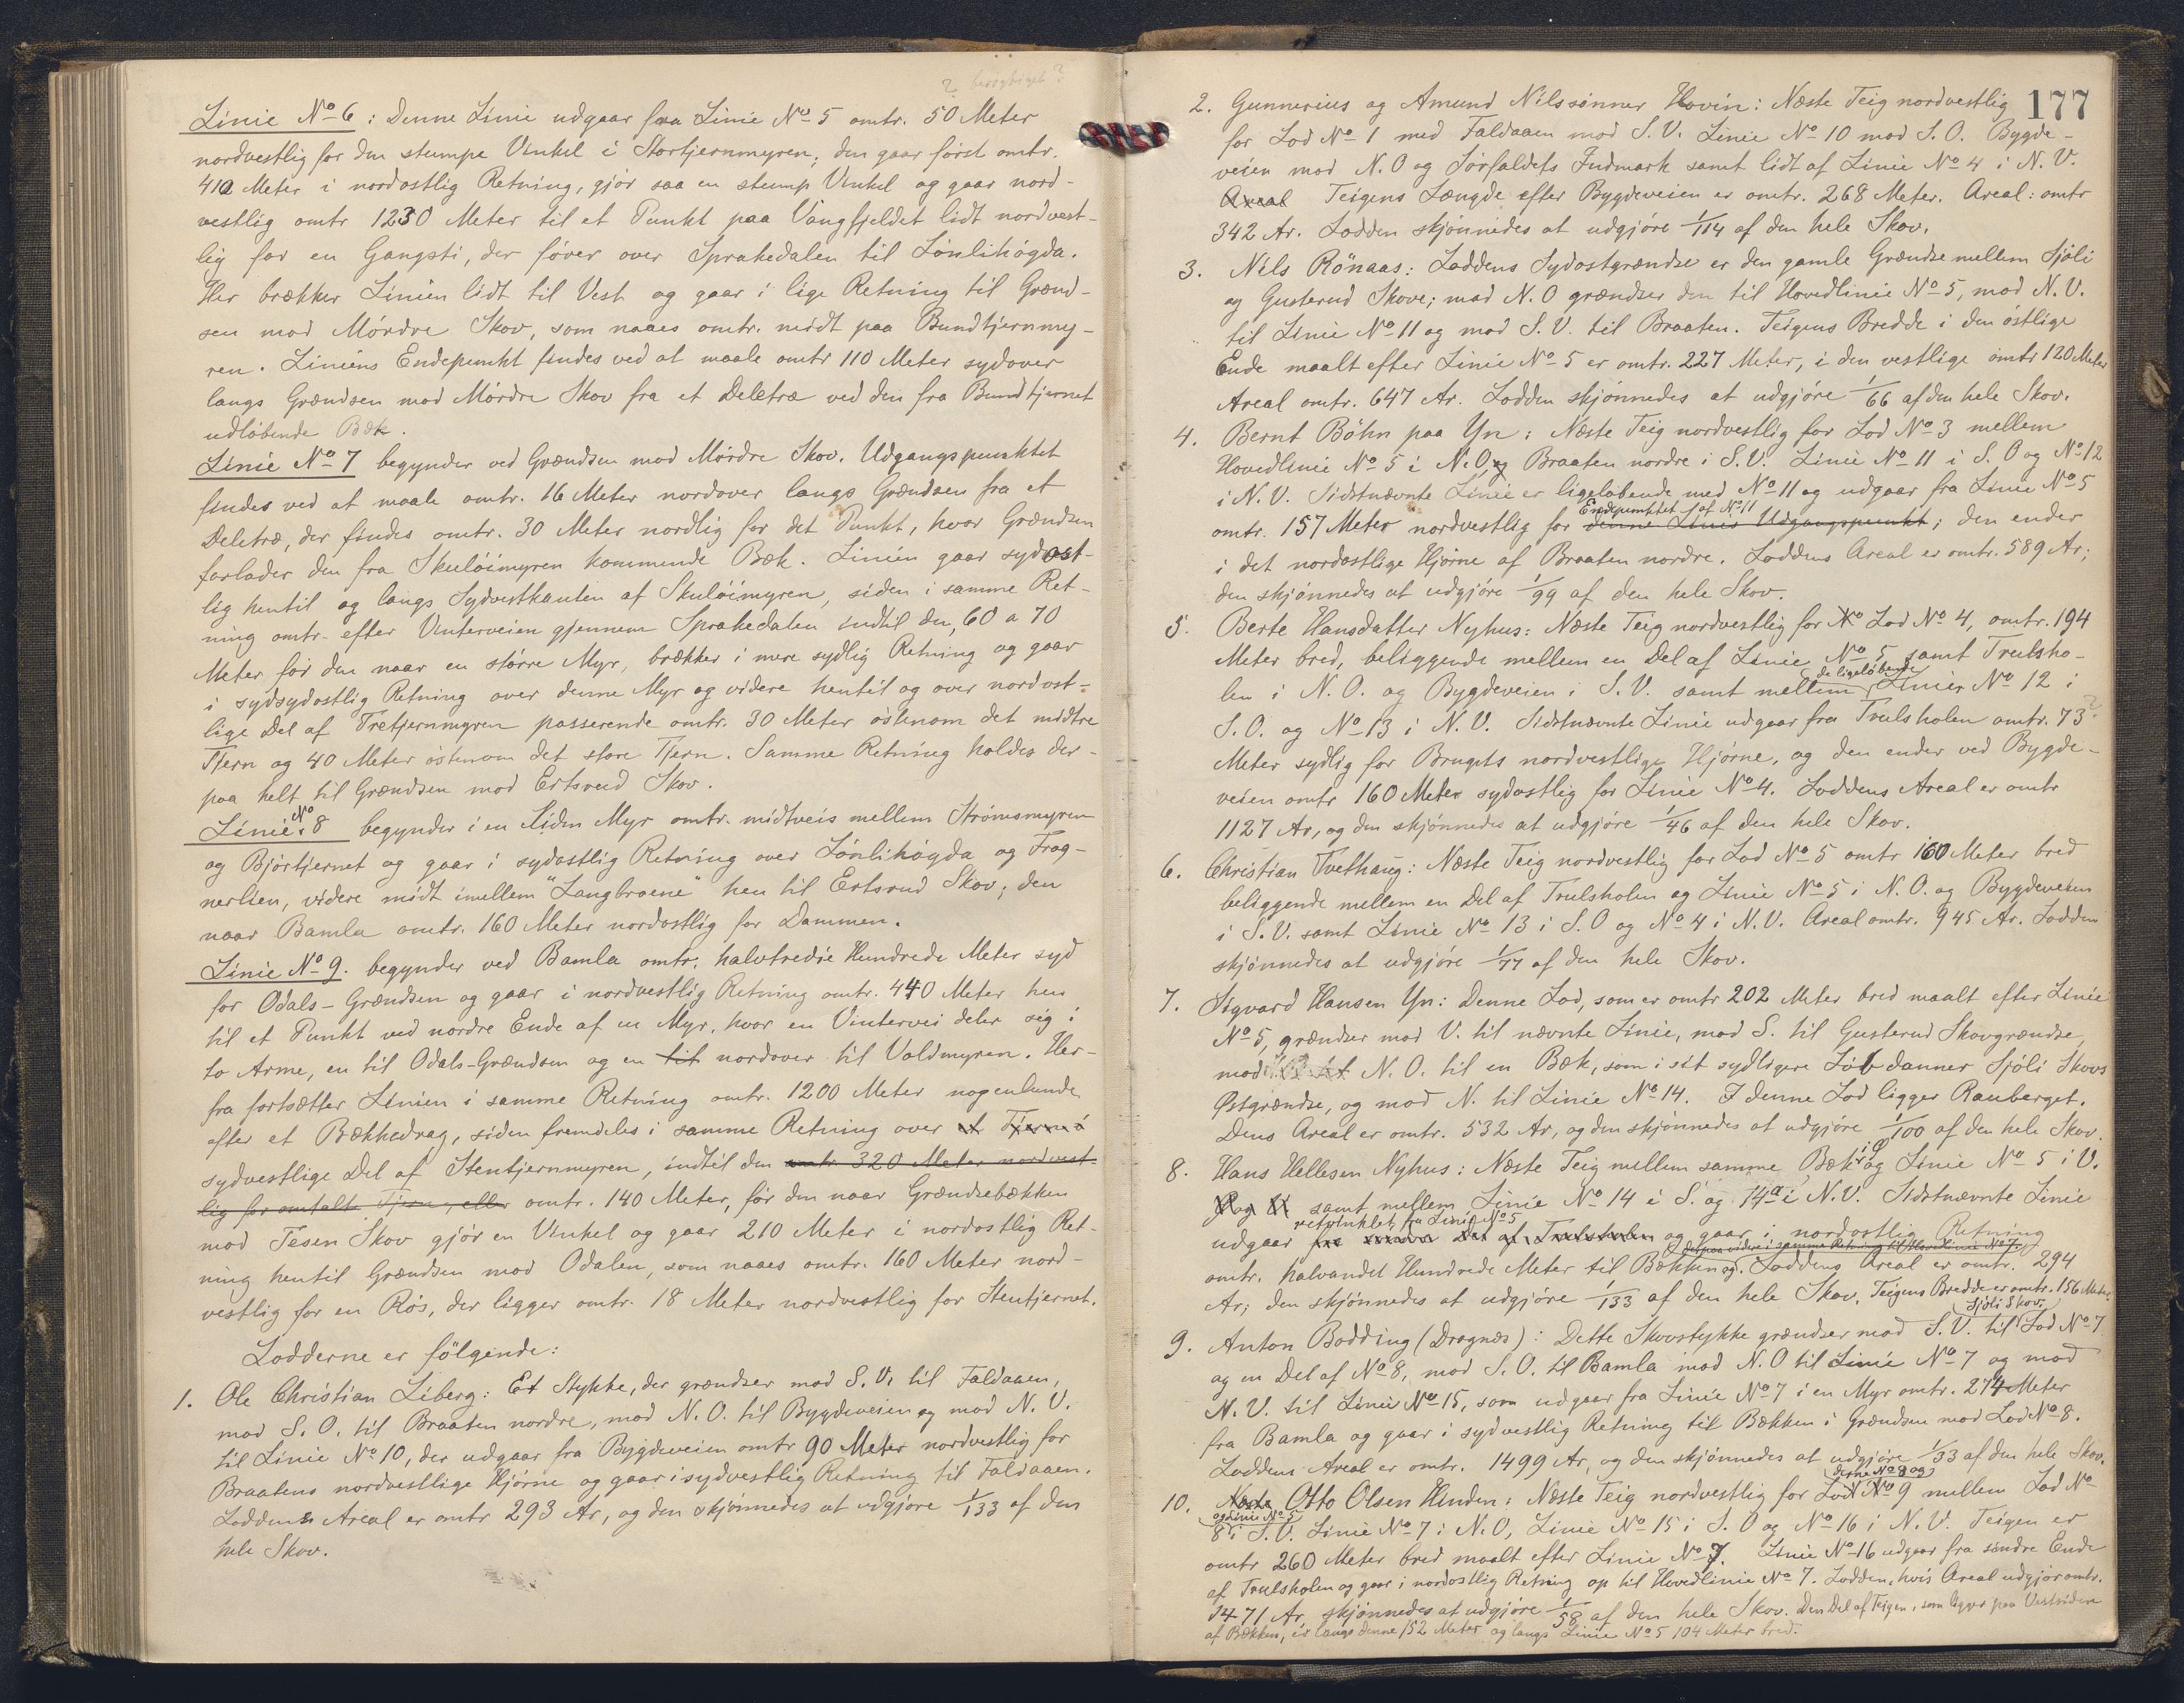 ? berigtiget ?
Linie No 6 : Denne Linie udgaar fra Linie No 5 omtr. 50 Meter
nordvestlig for den stumpe Vinkel i Stortjernmyren; den gaar först omtr.
410 Meter i nordostlig Retning, gjör saa en stump Vinkel og gaar nord-
vestlig omtr 1230 Meter til et Punkt paa Vangfjeldet lidt nordvest-
lig for en Gangsti, der förer over Sprakedalen til Lönlihögda.
Her brækker Linien lidt til Vest og gaar i lige Retning til Grænd-
sen mod Mördre Skov, som naaes omtr. midt paa Bundtjernmy-
ren. Liniens Endepunkt findes ved at maale omtr 110 Meter sydover
langs Grændsen mod Mördre Skov fra et Deletræ ved den fra Bundtjernet
udlöbende Bæk.
Linie No 7 begynder ved Grændsen mod Mördre Skov. Udgangspunktet
findes ved at maale omtr. 16 Meter nordover langs Grændsen fra et
Deletræ, der findes omtr. 30 Meter nordlig for det Punkt, hvor Grændsen
forlader den fra Skulöimyren kommende Bæk. Linien gaar sydost-
lig hentil og langs Sydvestkanten af Skulöimyren, siden i samme Ret-
ning omtr. efter Vinterveien gjennem Sprakedalen indtil den, 60 a 70
Meter för den naar en större Myr, brækker i mere sydlig Retning og gaar
i sydsydostlig Retning over denne Myr og videre hentil og over nordost-
lige Del af Tretjernmyren passerende omtr. 30 Meter östenom det midtre
Tjern og 40 Meter östenom det store Tjern. Samme Retning holdes der-
paa helt til Grændsen mod Ertsrud Skov.
Linie No 8 begynder i en liden Myr omtr. midtveis mellem Strömsmyren
og Björtjernet og gaar i sydostlig Retning over Lönlihögda og Frog-
nerlien, videre midt imellem "Langbroene" hen til Ertsrud Skov; den
naar Bamla omtr. 160 Meter nordostlig for Dammen.
Linie No 9. begynder ved Bamla omtr. halvtredie Hundrede Meter syd
for Odals-Grændsen og gaar i nordvestlig Retning omtr. 440 Meter hen
til et Punkt ved nordre Ende af en Myr, hvor en Vintervei deler sig i
to Arme, en til Odals-Grændsen og en til nordover til Voldmyren. Her-
fra fortsætter Linien i samme Retning omtr. 1200 Meter nogenlunde
efter et Bækkedrag, siden fremdeles i samme Retning over et Tjern i
sydvestlige Del af Stentjernmyren, indtil den omtr 320 Meter nordvest-
lig for omtalte Tjern, eller omtr. 140 Meter, för den naar Grændsebækken
mod Tesen Skov gjör en Vinkel og gaar 210 Meter i nordostlig Ret-
ning hentil Grændsen mod Odalen, som naaes omtr. 160 Meter nord-
vestlig for en Rös, der ligger omtr. 18 Meter nordvestlig for Stentjernet.
Lodderne er fölgende:
1. Ole Christian Liberg: Et Stykke, der grændser mod S.V. til Faldaaen,
mod S.O. til Braaten nordre, mod N.O. til Bygdeveien og mod N.V.
til Linie No 10, der udgaar fra Bygdeveien omtr 90 Meter nordvestlig for
Braatens nordvestlige Hjörne og gaar i sydvestlig Retning til Faldaaen.
Loddens Areal er omtr 293 Ar, og den skjönnedes at udgjöre 1/133 af den
hele Skov.
177
2. Gunnerius og Amund Nilssönner Hovin: Næste Teig nordvestlig
for Lod No 1 med Faldaaen mod S.V. Linie No 10 mod S.O. Bygde-
veien mod N.O og Sörfaldets Indmark samt lidt af Linie No 4 i N.V.
Areal Teigens Længde efter Bygdeveien er omtr. 268 Meter. Areal: omtr
342 Ar. Lodden skjönnedes at udgjöre 1/114 af den hele Skov.
3. Nils Rönaas: Loddens Sydostgrændse er den gamle Grændse mellem Sjöli
og Gusterud Skove; mod N.O grændser den til Hovedlinie No 5, mod N.V.
til Linie No 11 og mod S.V. til Braaten. Teigens Bredde i den östlige
Ende maalt efter Linie No 5 er omtr. 227 Meter, i den vestlige omtr 120 Meter
Areal omtr. 647 Ar. Lodden skjönnedes at udgjöre 1/66 af den hele Skov.
4. Bernt Böhn paa Yn: Næste Teig nordvestlig for Lod No 3 mellem
Hovedlinie No 5 i N.O. og Braaten nordre i S.V. Linie No 11 i S.O og No 12
i N.V. Sidstnævnte Linie er ligelöbende med No 11 og udgaar fra Linie No 5
Endepunktet af No 11
omtr. 157 Meter nordvestlig for denne Linies Udgangspunkt; den ender
i det nordostlige Hjörne af Braaten nordre. Loddens Areal er omtr. 589 Ar;
den skjönnedes at udgjöre 1/99 af den hele Skov.
5. Berte Hansdatter Nyhus: Næste Teig nordvestlig for No Lod No 4, omtr. 194
Meter bred, beliggende mellem en Del af Linie No 5 samt Trulsho-
de ligelöbende
len i N.O. og Bygdeveien i S.V. samt mellem Linier No 12 i
S.O. og No 13 i N.V. Sidstnævnte Linie udgaar fra Trulsholen omtr. 73 ?
Meter sydlig for Brugets nordvestlige Hjörne, og den ender ved Bygde-
veien omtr 160 Meter sydostlig for Linie No 4. Loddens Areal er omtr
1127 Ar, og den skjönnedes at udgjöre 1/46 af den hele Skov.
6. Christian Tvethaug: Næste Teig nordvestlig for Lod No 5 omtr 160 Meter bred
beliggende mellem en Del af Trulsholen og Linie No 5 i N.O. og Bygdeveien
i S.V. samt Linie No 13 i S.O og No 4 i N.V. Areal omtr. 945 Ar. Lodden
skjönnedes at udgjöre 1/77 af den hele Skov.
7. Sigvard Hansen Yn: Denne Lod, som er omtr 202 Meter bred maalt efter Linie
No 5, grændser mod V. til nævnte Linie, mod S. til Gusterud Skovgrændse,
mod N.O. til en Bæk, som i sit sydligere Löb danner Sjöli Skovs
Östgrændse, og mod N. til Linie No 14. I denne Lod ligger Rauberget.
Dens Areal er omtr. 532 Ar, og den skjönnedes at udgjöre 1/100 af den hele Skov.
8. Hans Hellesen Nyhus: Næste Teig mellem samme Bæk i Ø og Linie No 5 i V.
samt mellem Linie No 14 i S. og 14a i N.V. Sidstnævnte Linie
retvinklet fra Linie No 5
udgaar fra søndre Del af Trulsholen og gaar i nordostlig Retning
derpaa videre i samme Retning til Hovedlinie No 7.
omtr. halvandet Hundrede Meter til Bækken og. Loddens Areal er omtr. 294
Ar; den skjönnedes at udgjöre 1/133 af den hele Skov. Teigens Bredde er omtr. 156 Meter.
Sjöli Skov,
9. Anton Bodding (Dragnæs): Dette Skovstykke grændser mod S.V. til Lod No 7
og en Del af No 8, mod S.O. til Bamla mod N.O til Linie No 7 og mod
N.V. til Linie No 15, som udgaar fra Linie No 7 i en Myr omtr. 274 Meter
fra Bamla og gaar i sydvestlig Retning til Bækken i Grændsen mod Lod No 8.
Loddens Areal er omtr. 1499 Ar, og den skjönnedes at udgjöre 1/33 af den hele Skov.
derne No 8 og
10. Næste Otto Olsen Hinden: Næste Teig nordvestlig for Lod No 9 mellem Lod No
og Linie No 5
8 i S.V. Linie No 7 i N.O, Linie No 15 i S.O og No 16 i N.V. Teigen er
omtr 260 Meter bred maalt efter Linie No 7. Linie No 16 udgaar fra söndre Ende
af Trulsholen og gaar i nordostlig Retning op til Hovedlinie No 7. Lodden, hvis Areal udgjör omtr.
1471 Ar, skjönnedes at udgjöre 1/58 af den hele Skov. Den Del af Teigen, som ligger paa Vestsiden
af Bækken, er langs denne 152 Meter og langs Linie No 5 104 Meter bred.